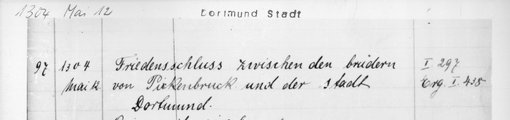 1304 Mai 12
Dortmund Stadt
97 1304 Friedensschluss zwischen den brüdern I 297
Mai 12 von Pickenbruck und der stadt Erg. I. 438
Dortmund.